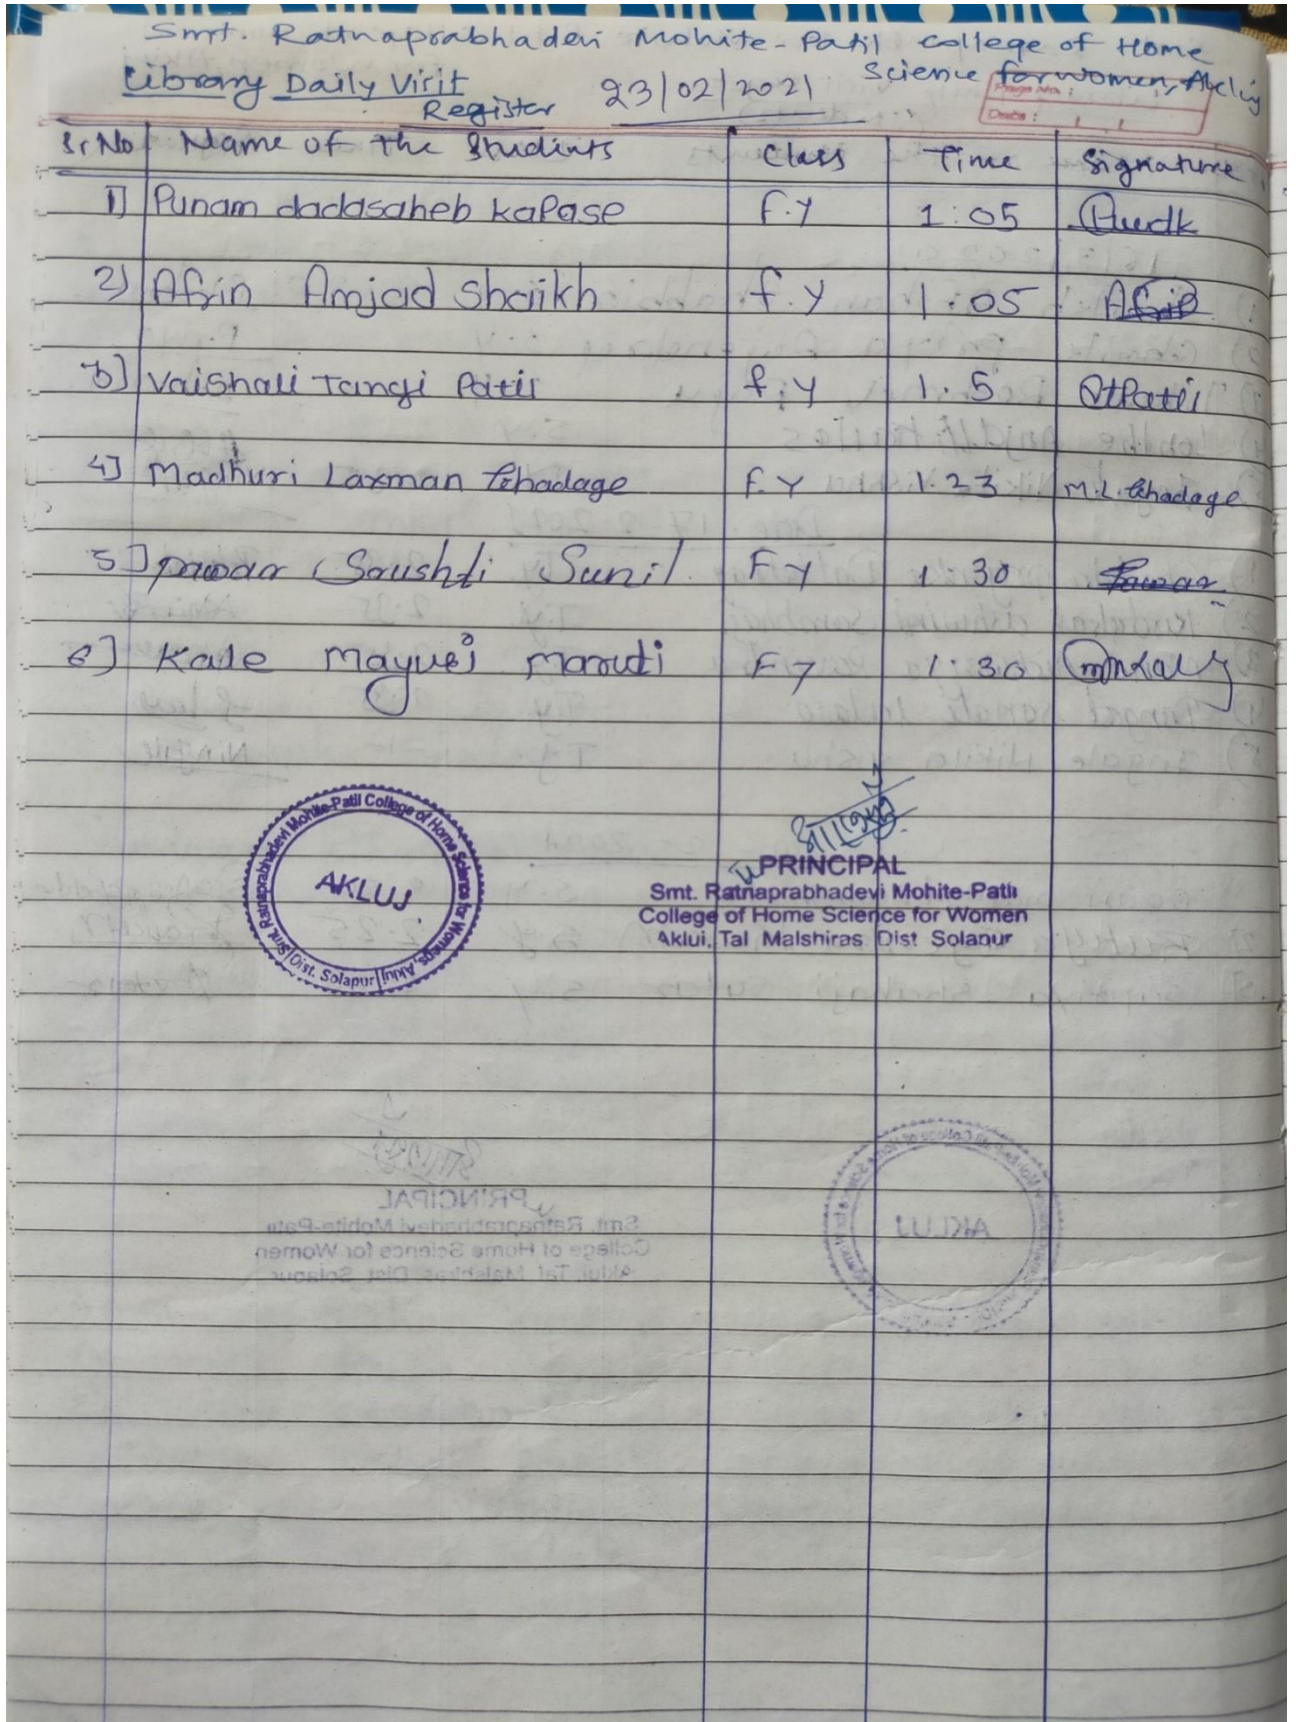 Smt. Ratnaprabhadevi Mohite-Patil College of Home
Science for women, Akluj
Library Daily Visit
Register 23/02/2021
Page No :
Date : / /
Sr.No Name of the Students Class Time Signature
1] Punam dadasaheb kapase F.Y 1:05
2) Afrin Amjad Shaikh f.y 1.05 Afrin
3] Vaishali Tangi Patil f.y 1.5 Patil
4] Madhuri Laxman Ghadage F.Y 1.23 M.L. Ghadage
5] pawar Srushti Sunil F Y 1 30 Pawar
6] Kale Mayuri Maruti F Y 1:30
Smt. Ratnaprabhadevi Mohite-Patil College of Home Science for Womens, Akluj
AKLUJ
Dist. Solapur
PRINCIPAL
Smt. Ratnaprabhadevi Mohite-Patil
College of Home Science for Women
Akluj, Tal Malshiras Dist Solapur